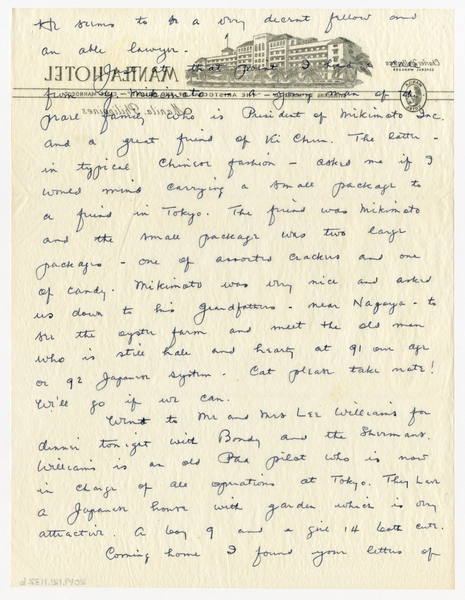 He seems to be a very decent fellow and
an able lawyer.
MANILA HOTEL
Manila Philippines
At that point I had a
from Mikimoto - a young man of the
pearl family who is President of Mikimoto Inc.
and a great friend of Ki Chun. The latter -
in typical Chinese fashion - asked me if I
would mind carrying a small package to
a friend in Tokyo. The friend was Mikimoto
and the small package was two large
packages - one of assorted crackers and one
of candy. Mikimoto was very nice and asked
us down to his grandfathers - near Nagoya - to
see the oyster farm and meet the old man
who is still hale and hearty at 91 our age
or 92 Japanese system. Cat please take note!
We'll go if we can.
Went to Mr and Mrs Lee Williams for
dinner tonight with Bondy and the Shermans.
Williams is an old Paa pilot who is now
in charge of all operations at Tokyo. They live
a Japanese house with garden which is very
attractive. A boy 9 and a girl 14 both cute.
Coming home I found your letters of